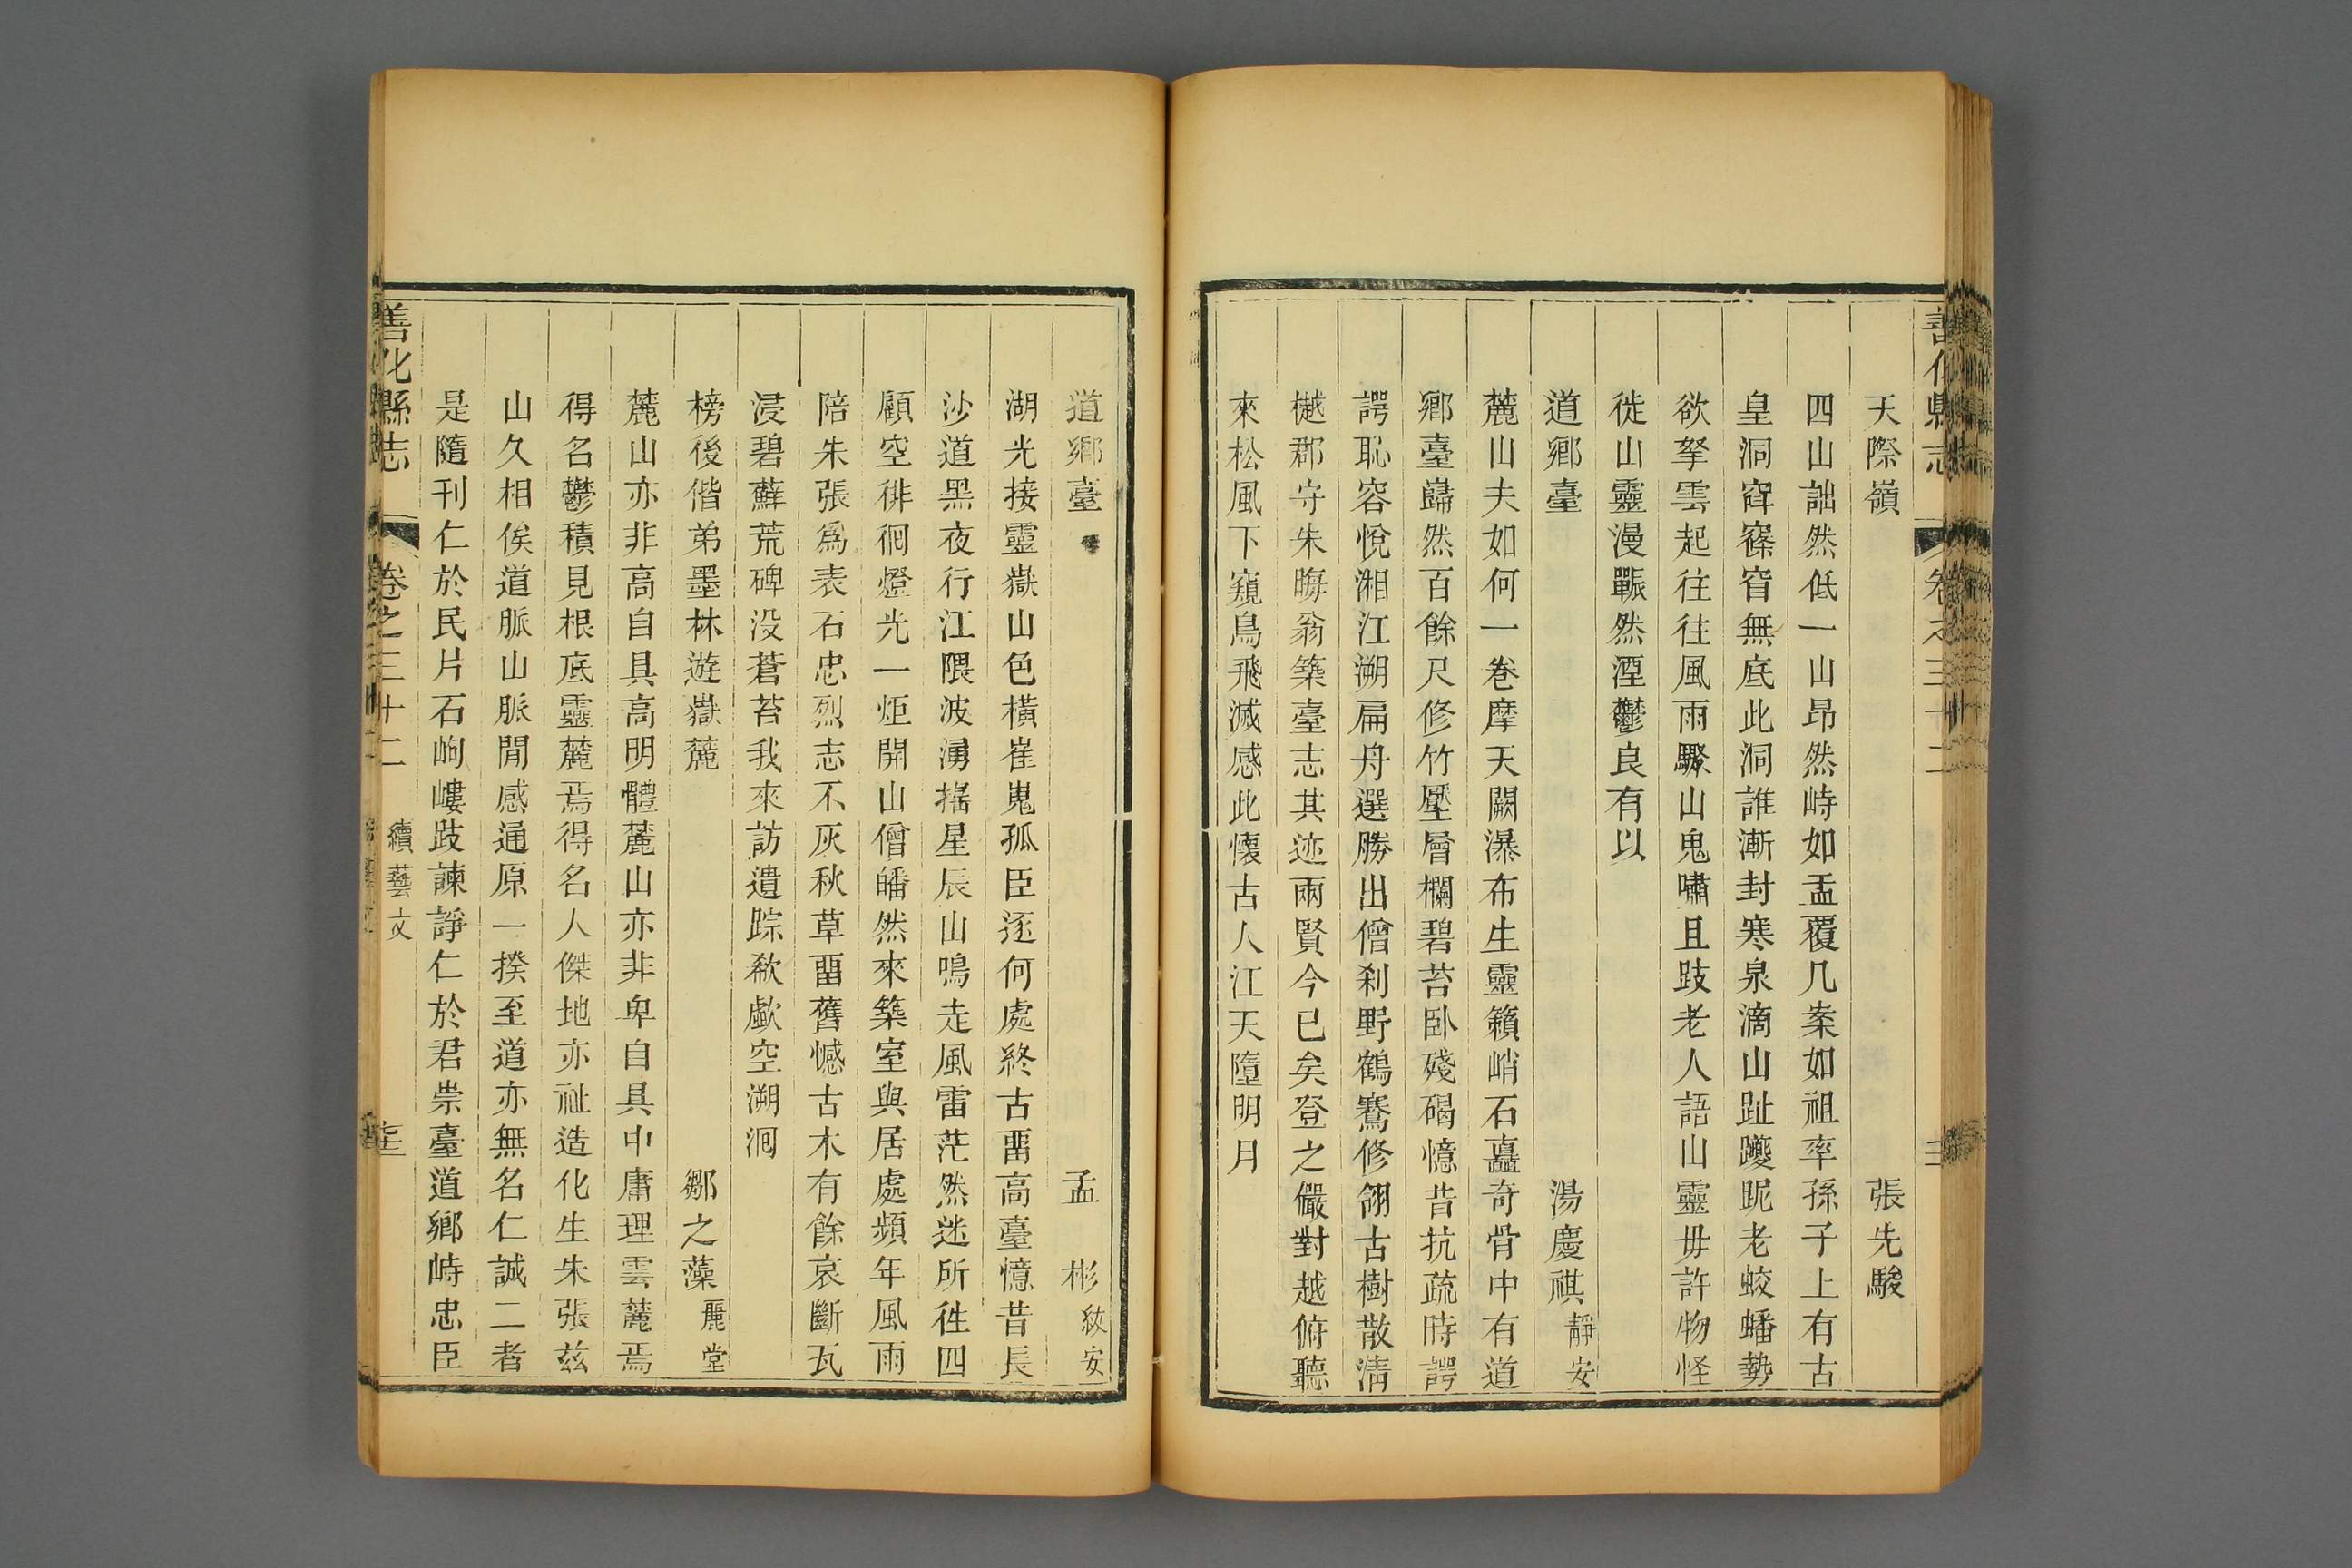 善化縣志 卷之三十二
天際嶺 張先駿
四山詘然低一山昂然峙如盂覆几案如祖率孫子上有古
皇洞窅窱窅無底此洞誰漸封寒泉滴山趾躨跜老蛟蟠勢
欲拏雲起往往風雨驟山鬼嘯且跂老人語山靈毋許物怪
徙山靈漫囅然湮鬱良有以
道鄉臺 湯慶祺靜安
麓山夫如何一卷摩天闕瀑布生靈籟峭石矗奇骨中有道
鄉臺巋然百餘尺修竹壓層欄碧苔臥殘碣憶昔抗疏時諤
諤恥容悅湘江溯扁舟選勝出僧刹野鶴騫修翎古樹散淸
樾郡守朱晦翁築臺志其迹兩賢今已矣登之儼對越俯聽
來松風下窺鳥飛滅感此懷古人江天墮明月
道鄉臺 孟彬紱安
湖光接靈嶽山色橫崔嵬孤臣逐何處終古畱高臺憶昔長
沙道黑夜行江隈波湧搖星辰山鳴走風雷茫然迷所往四
顧空徘徊燈光一炬開山僧皤然來築室與居處頻年風雨
陪朱張爲表石忠烈志不灰秋草畱舊憾古木有餘哀斷瓦
浸碧蘚荒碑没蒼苔我來訪遺踪欷歔空溯洄
榜後偕弟墨林遊嶽麓 鄒之藻麗堂
麓山亦非高自具高明體麓山亦非卑自具中庸理雲麓焉
得名鬱積見根底靈麓焉得名人傑地亦祉造化生朱張茲
山久相俟道脈山脈閒感通原一揆至道亦無名仁誠二者
是隨刊仁於民片石岣嶁跂諫諍仁於君崇臺道鄉峙忠臣
善化縣志 卷之三十二 續藝文